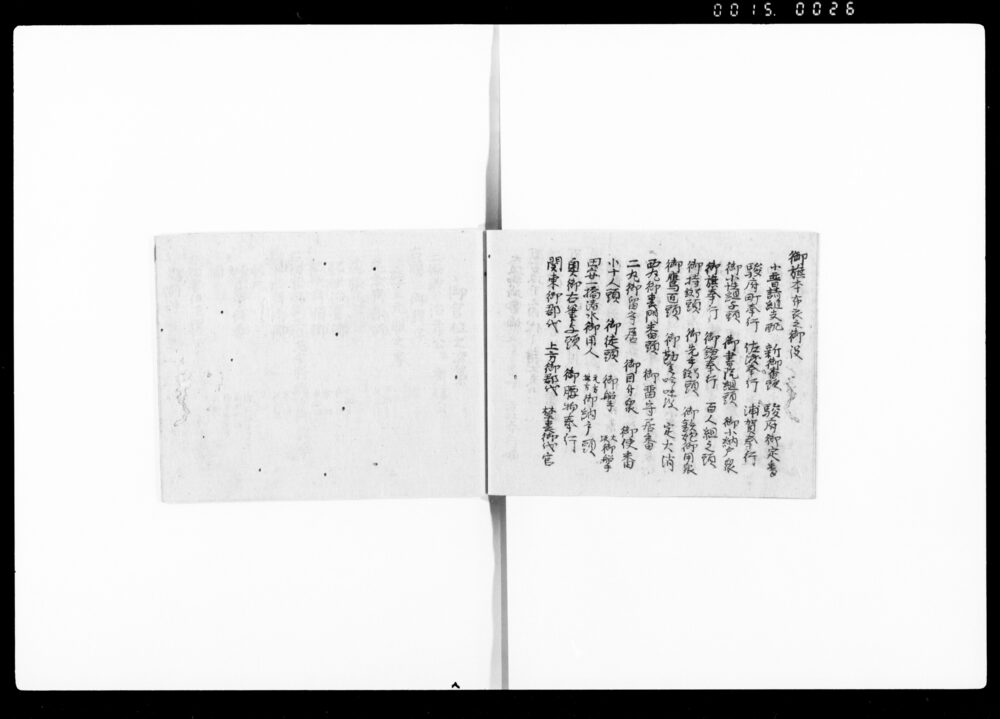 0015. 0026
御旗本布衣之御役
小普請組支配 新御番頭 駿府御定番
駿府町奉行 佐渡奉行 浦賀奉行
御小性組与頭 御書院組頭 御小納戸衆
御旗奉行 御鎗奉行 百人組之頭
御持頭 御先手頭 御鉄炮御用衆
御鷹匠頭 御勘定吟味役 定火消
西丸御裏門番頭 御留守居番
二丸御留守居 御目付衆 御使番
小十人頭 御徒頭 御船手 大坂御船手
田安一橋清水御用人 元方払方御納戸頭
奥御右筆与頭 御腰物奉行
関東御郡代 上方御郡代 御代官